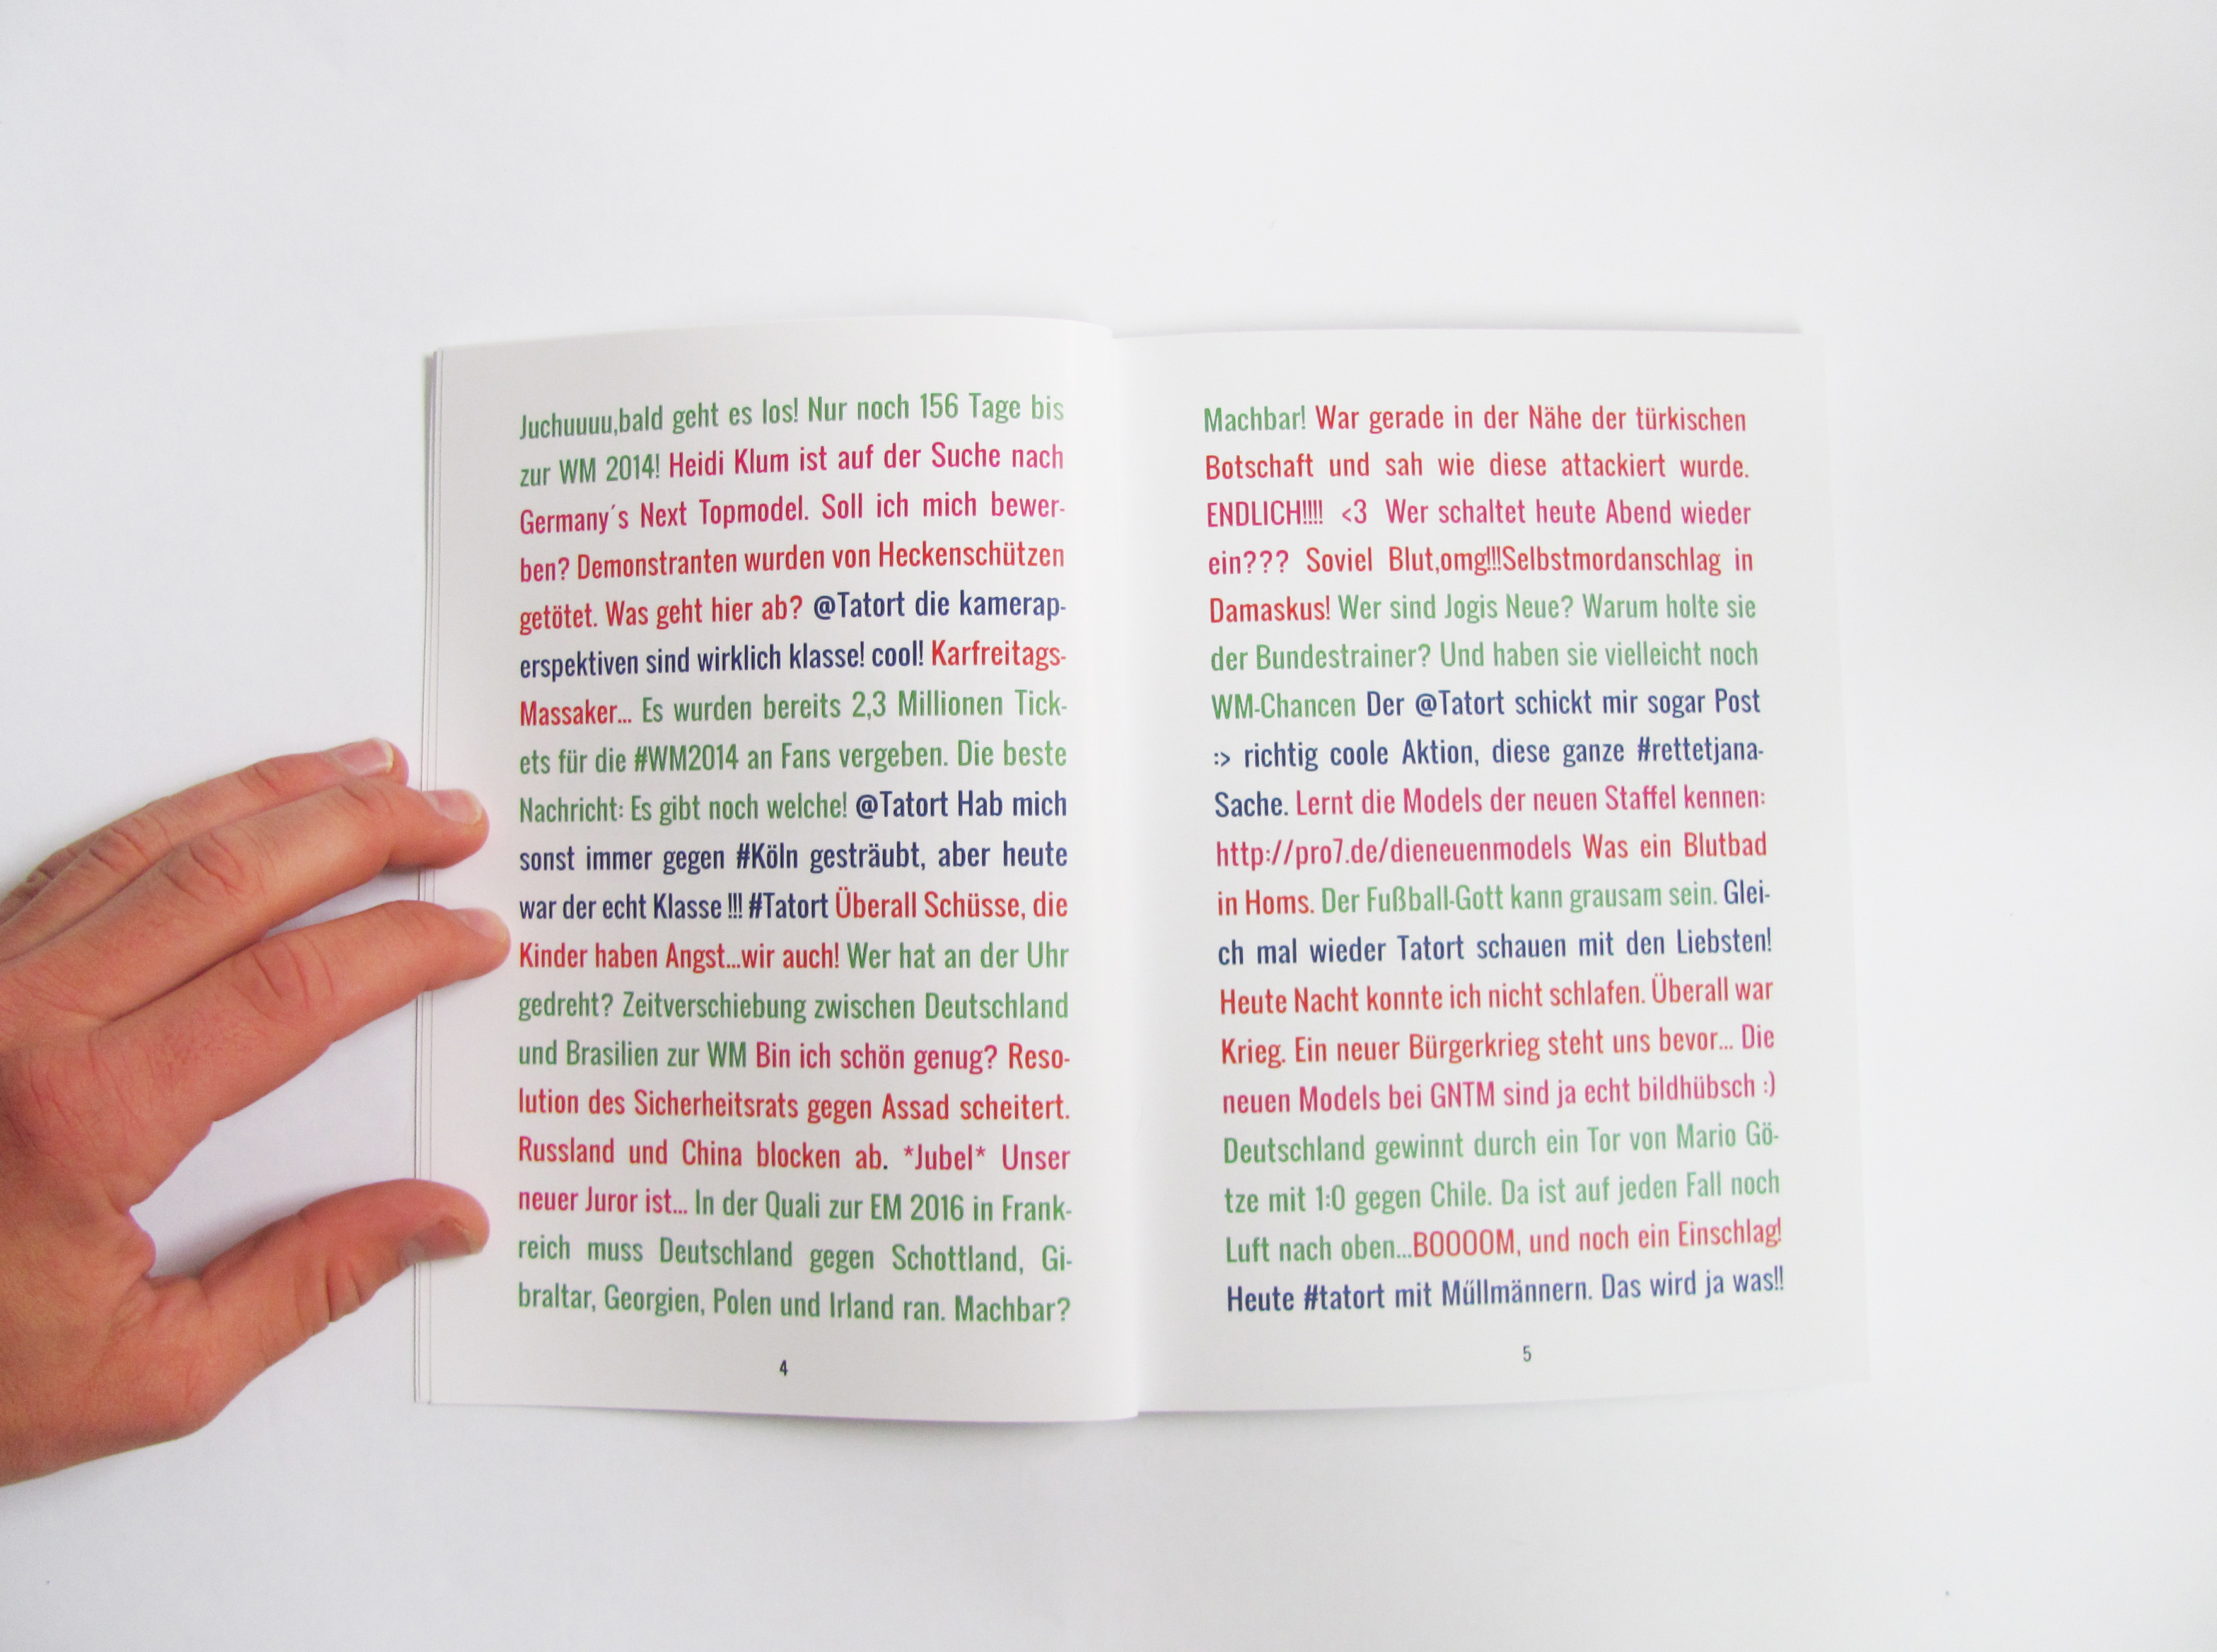 Juchuuuu,bald geht es los! Nur noch 156 Tage bis
zur WM 2014! Heidi Klum ist auf der Suche nach
Germany´s Next Topmodel. Soll ich mich bewer-
ben? Demonstranten wurden von Heckenschützen
getötet. Was geht hier ab? @Tatort die kamerap-
erspektiven sind wirklich klasse! cool! Karfreitags-
Massaker... Es wurden bereits 2,3 Millionen Tick-
ets für die #WM2014 an Fans vergeben. Die beste
Nachricht: Es gibt noch welche! @Tatort Hab mich
sonst immer gegen #Köln gesträubt, aber heute
war der echt Klasse !!! #Tatort Überall Schüsse, die
Kinder haben Angst...wir auch! Wer hat an der Uhr
gedreht? Zeitverschiebung zwischen Deutschland
und Brasilien zur WM Bin ich schön genug? Reso-
lution des Sicherheitsrats gegen Assad scheitert.
Russland und China blocken ab. *Jubel* Unser
neuer Juror ist... In der Quali zur EM 2016 in Frank-
reich muss Deutschland gegen Schottland, Gi-
braltar, Georgien, Polen und Irland ran. Machbar?
4
Machbar! War gerade in der Nähe der türkischen
Botschaft und sah wie diese attackiert wurde.
ENDLICH!!!! <3 Wer schaltet heute Abend wieder
ein??? Soviel Blut,omg!!!Selbstmordanschlag in
Damaskus! Wer sind Jogis Neue? Warum holte sie
der Bundestrainer? Und haben sie vielleicht noch
WM-Chancen Der @Tatort schickt mir sogar Post
:> richtig coole Aktion, diese ganze #rettetjana-
Sache. Lernt die Models der neuen Staffel kennen:
http://pro7.de/dieneuenmodels Was ein Blutbad
in Homs. Der Fußball-Gott kann grausam sein. Glei-
ch mal wieder Tatort schauen mit den Liebsten!
Heute Nacht konnte ich nicht schlafen. Überall war
Krieg. Ein neuer Bürgerkrieg steht uns bevor... Die
neuen Models bei GNTM sind ja echt bildhübsch :)
Deutschland gewinnt durch ein Tor von Mario Gö-
tze mit 1:0 gegen Chile. Da ist auf jeden Fall noch
Luft nach oben...BOOOOM, und noch ein Einschlag!
Heute #tatort mit Műllmännern. Das wird ja was!!
5